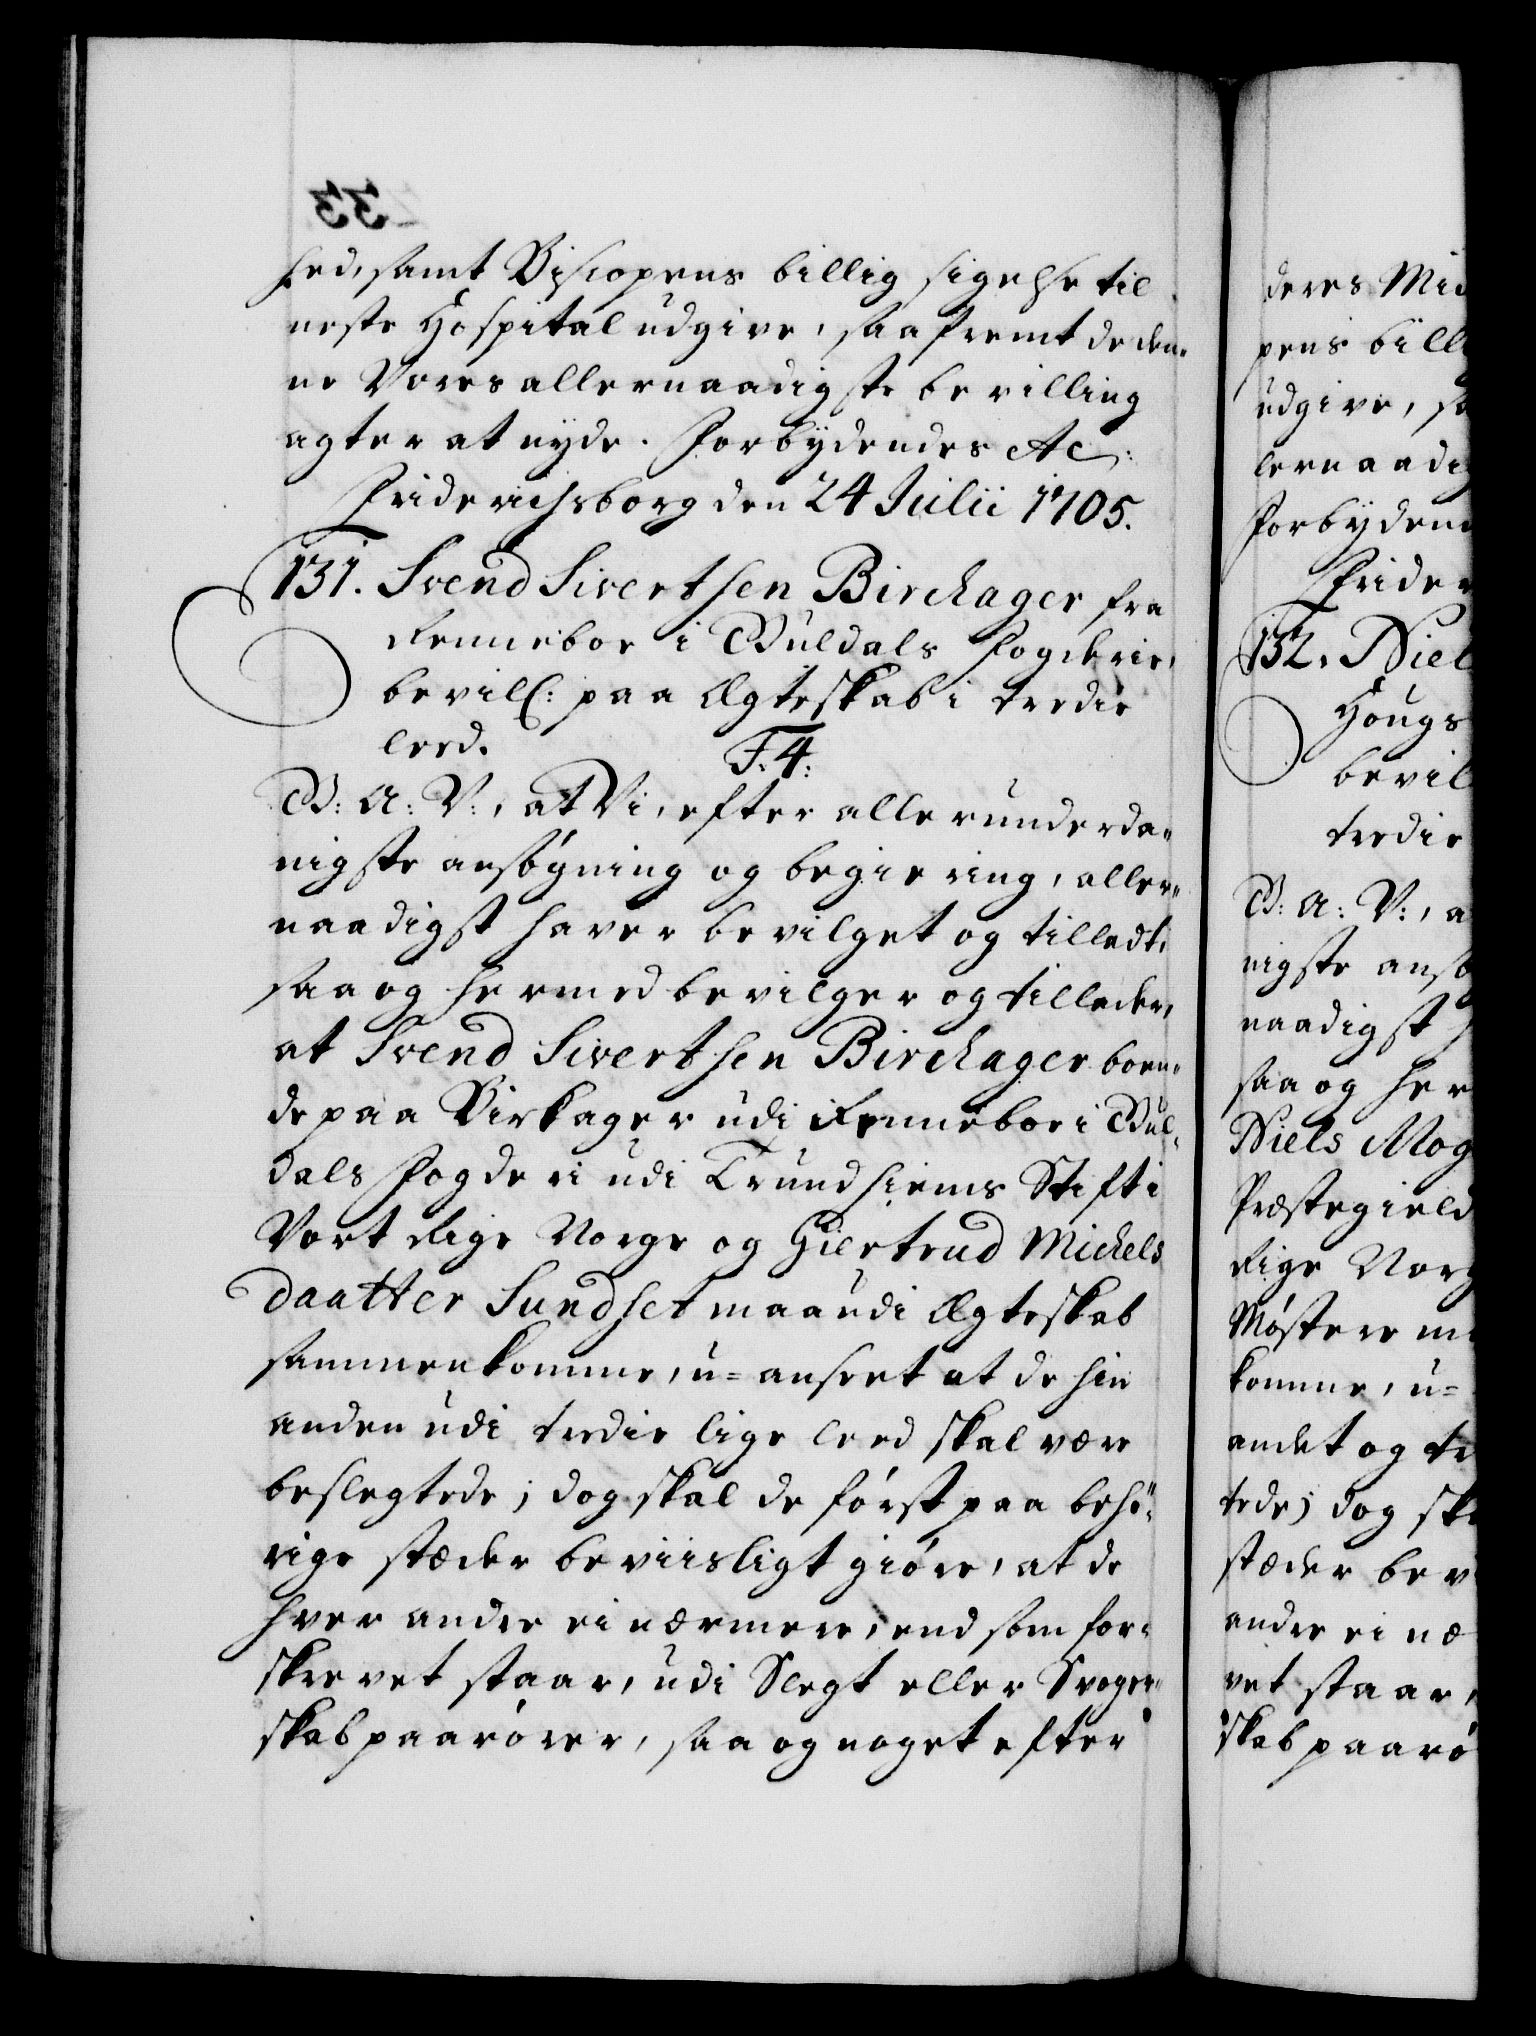 hed, samt Biscopens billig sigelse til
neste Hospital udgive, saafremt de den-
ne Vores allernaadigste bevilling
agter at nyde. Forbydendes etc:
Friderichsborg den 24 Julii 1705.
131. Svend Sivertsen Birchager fra
Renneboe i Guldals Fogderie,
bevill: paa Ægteskab i tredie
leed.
F. 4:
G: A: V:, at Vi, efter allerunderda-
nigste ansøgning og begiering, aller-
naadigst haver bevilget og tilladt,
saa og hermed bevilger og tillader,
at Svend Sivertsen Birchager boen-
de paa Birkager udi Renneboe i Gul-
dals Fogderi udi Trundhiems Stift i
Vort Rige Norge og Giertrud Michels
daatter Sundset maa udi Ægteskab
sammenkomme, u-anseet at de hin
anden udi tredie lige leed skal være
beslegtede; dog skal de først paa behø-
rige stæder beviisligt giøre, at de
hver andre ei nærmere, end som for-
skrevet staar, udi Slegt eller Svoger-
skab paarører, saa og noget efter
33
deres Mid
pens billi
udgive, sa
lernaadig
Forbydend
Frider
132. Niel
Hougs
bevil
tredie
G: A: V:, a
nigste ansø
naadigst h
saa og her
Niels Mog
Præstegield
Rige Norg
Møstere m
komme, u-
andet og tr
tede; dog ska
stæder bev
andre ei næ
vet staar,
skab paarø